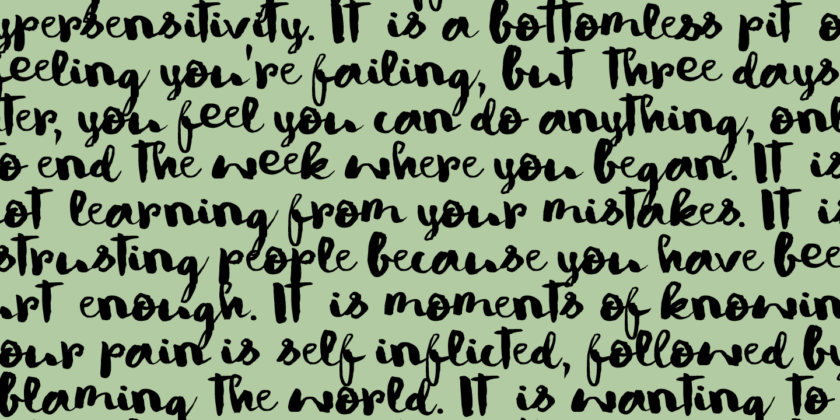 ypersensitivity. It is a bottomless pit o
feeling you're failing, but three days
ter, you feel you can do anything, onl
to end the week where you began. It is
ot learning from your mistakes. It is
strusting people because you have bee
urt enough. It is moments of knowin
our pain is self inflicted, followed by
blaming the world. It is wanting to